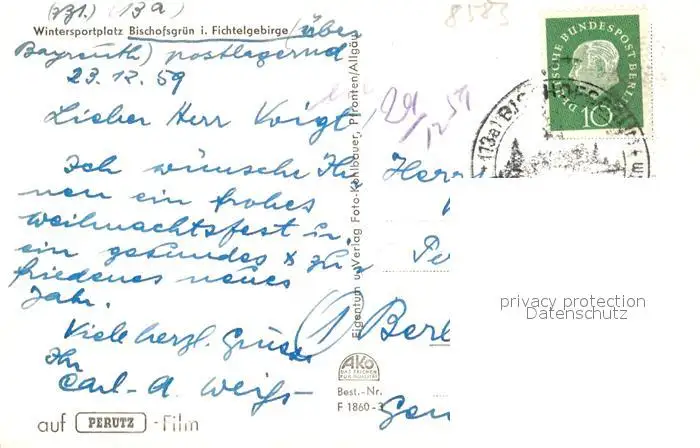 (13a)
Wintersportplatz Bischofsgrün i. Fichtelgebirge (über
Bayreuth) postlagernd
23.12.59
Lieber Herr Voigt,
Ich wünsche Ih-
nen ein frohes
Weihnachtsfest u.
ein gesundes & zu-
friedenes neues
Jahr.
Viele herzl. Grüsse
Ihr
Carl-A. Weiß
auf PERUTZ-Film
Eigentum u. Verlag Foto-Kohlbauer, Pfronten/Allgäu
AKO
DAS ZEICHEN
FÜR QUALITÄT
Best.-Nr.
F 1860-3
8583
29/12 59
DEUTSCHE BUNDESPOST BERLIN
10
(13a) BISCHOFSGRÜN
Herr
(1) Berl
privacy protection
Datenschutz